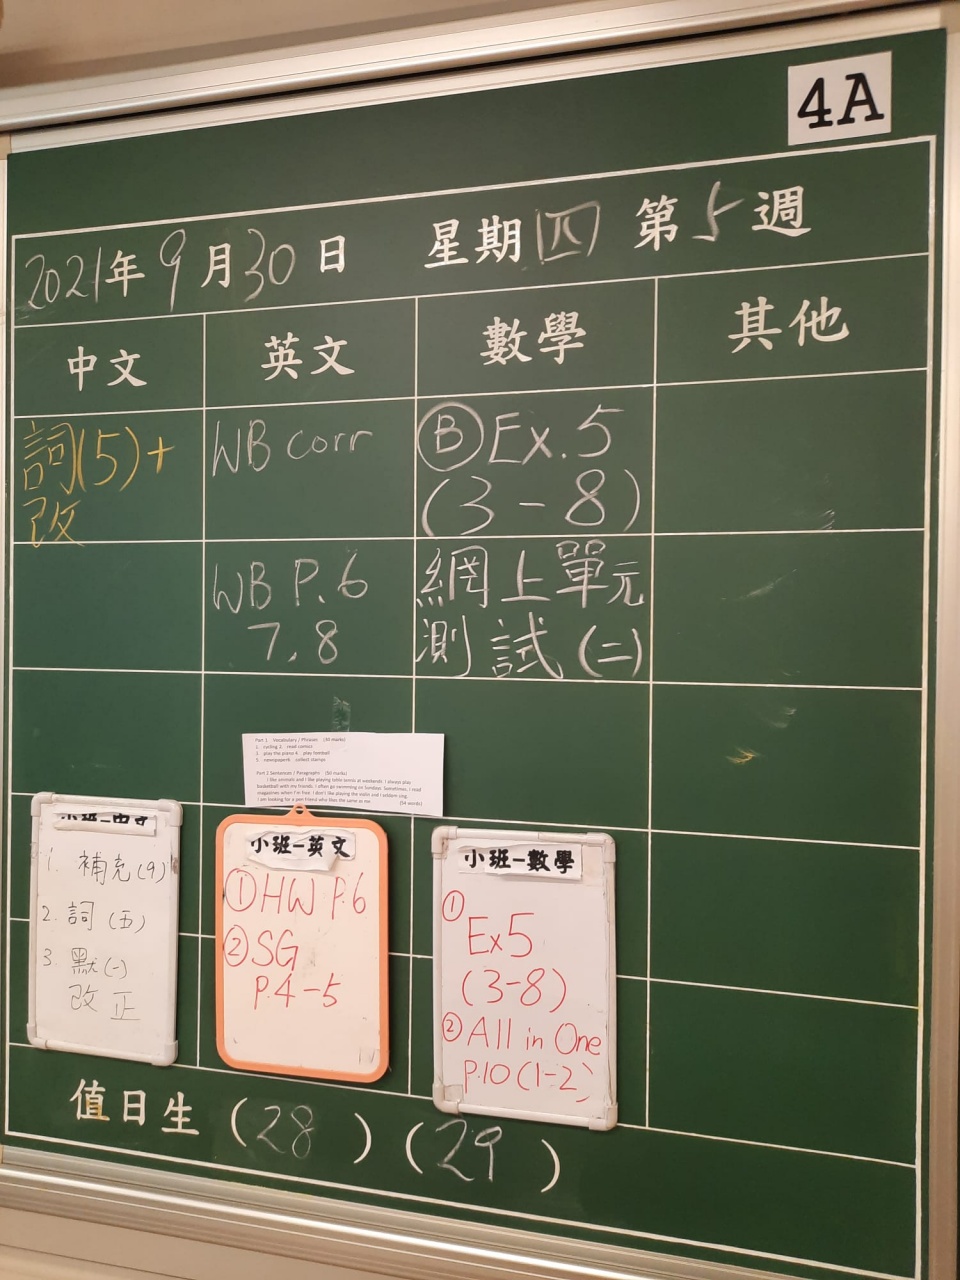 4A
2021年9月30日 星期四 第5週
中文 英文 數學 其他
詞(5)+
改
WB corr
Ⓑ Ex.5
(3-8)
WB P.6
7,8
網上單元
測試(二)
Part 1 Vocabulary / Phrases (30 marks)
1. cycling 2. read comics
3. play the piano 4. play football
5. newspaper6. collect stamps
Part 2 Sentences / Paragraphs (50 marks)
I like animals and I like playing table tennis at weekends. I always play
basketball with my friends. I often go swimming on Sundays. Sometimes, I read
magazines when I'm free. I don't like playing the violin and I seldom sing.
I am looking for a pen friend who likes the same as me. (54 words)
小班-中文
1. 補充(9)
2. 詞(五)
3. 默(一)
改正
小班-英文
① HW P.6
② SG
P.4-5
小班-數學
①
Ex5
(3-8)
② All in One
P.10(1-2)
值日生 (28)(29)